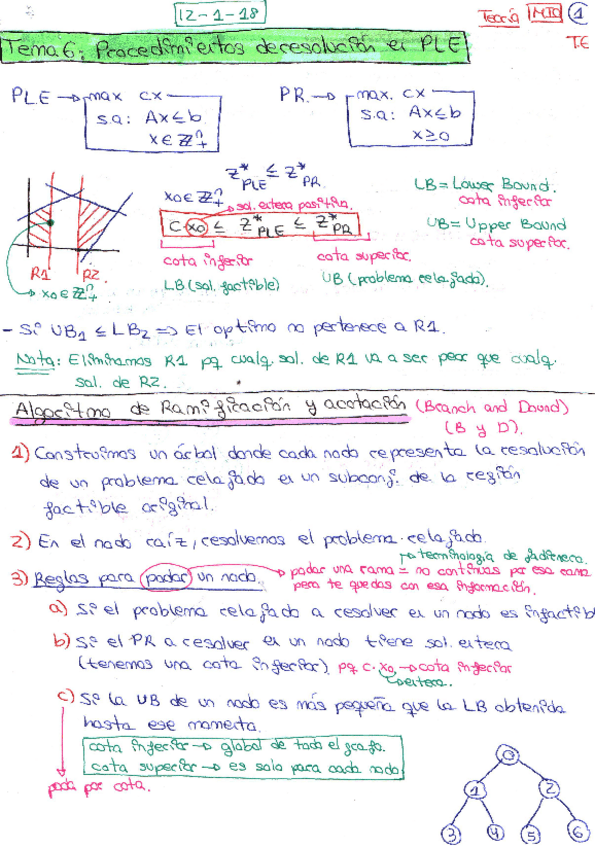 12-1-18
Teoría MIO 1
T.E
Tema 6: Procedimientos de resolución en PLE
PLE → max cx
s.a: Ax≤b
x∈Z₊ⁿ
PR → max. cx
s.a: Ax≤b
x≥0
Z*PLE ≤ Z*PR
x0∈Z₊ⁿ
sol. entera positiva.
C·x0 ≤ Z*PLE ≤ Z*PR
cota inferior
LB (sol. factible)
cota superior.
UB (problema relajado).
LB = Lower Bound.
cota inferior
UB = Upper Bound
cota superior.
R1 R2
x0∈Z₊ⁿ.
- Si UB₁ ≤ LB₂ ⇒ El optimo no pertenece a R1.
Nota: Eliminamos R1 pq cualq. sol. de R1 va a ser peor que cualq.
sol. de R2.
Algoritmo de Ramificación y acotación (Branch and Bound)
(B y B).
1) Construimos un árbol donde cada nodo representa la resolución
de un problema relajado en un subconj. de la región
factible original.
2) En el nodo raíz, resolvemos el problema relajado.
→ terminología de jardinera.
3) Reglas para podar un nodo.
→ podar una rama = no continuas por esa rama
pero te quedas con esa información.
a) Si el problema relajado a resolver en un nodo es infactibl
b) Si el PR a resolver en un nodo tiene sol. entera
(tenemos una cota inferior). pq c·x0 → cota inferior
entera.
c) Si la UB de un nodo es más pequeña que la LB obtenida
hasta ese momento.
cota inferior → global de todo el grafo.
cota superior → es solo para cada nodo
poda por cota.
0
1 2
3 4 5 6